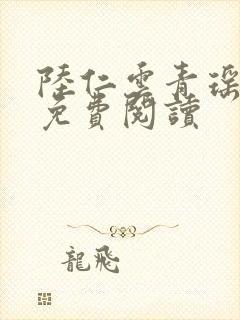 陸仁雲青瑶
免費閱讀
龍飛